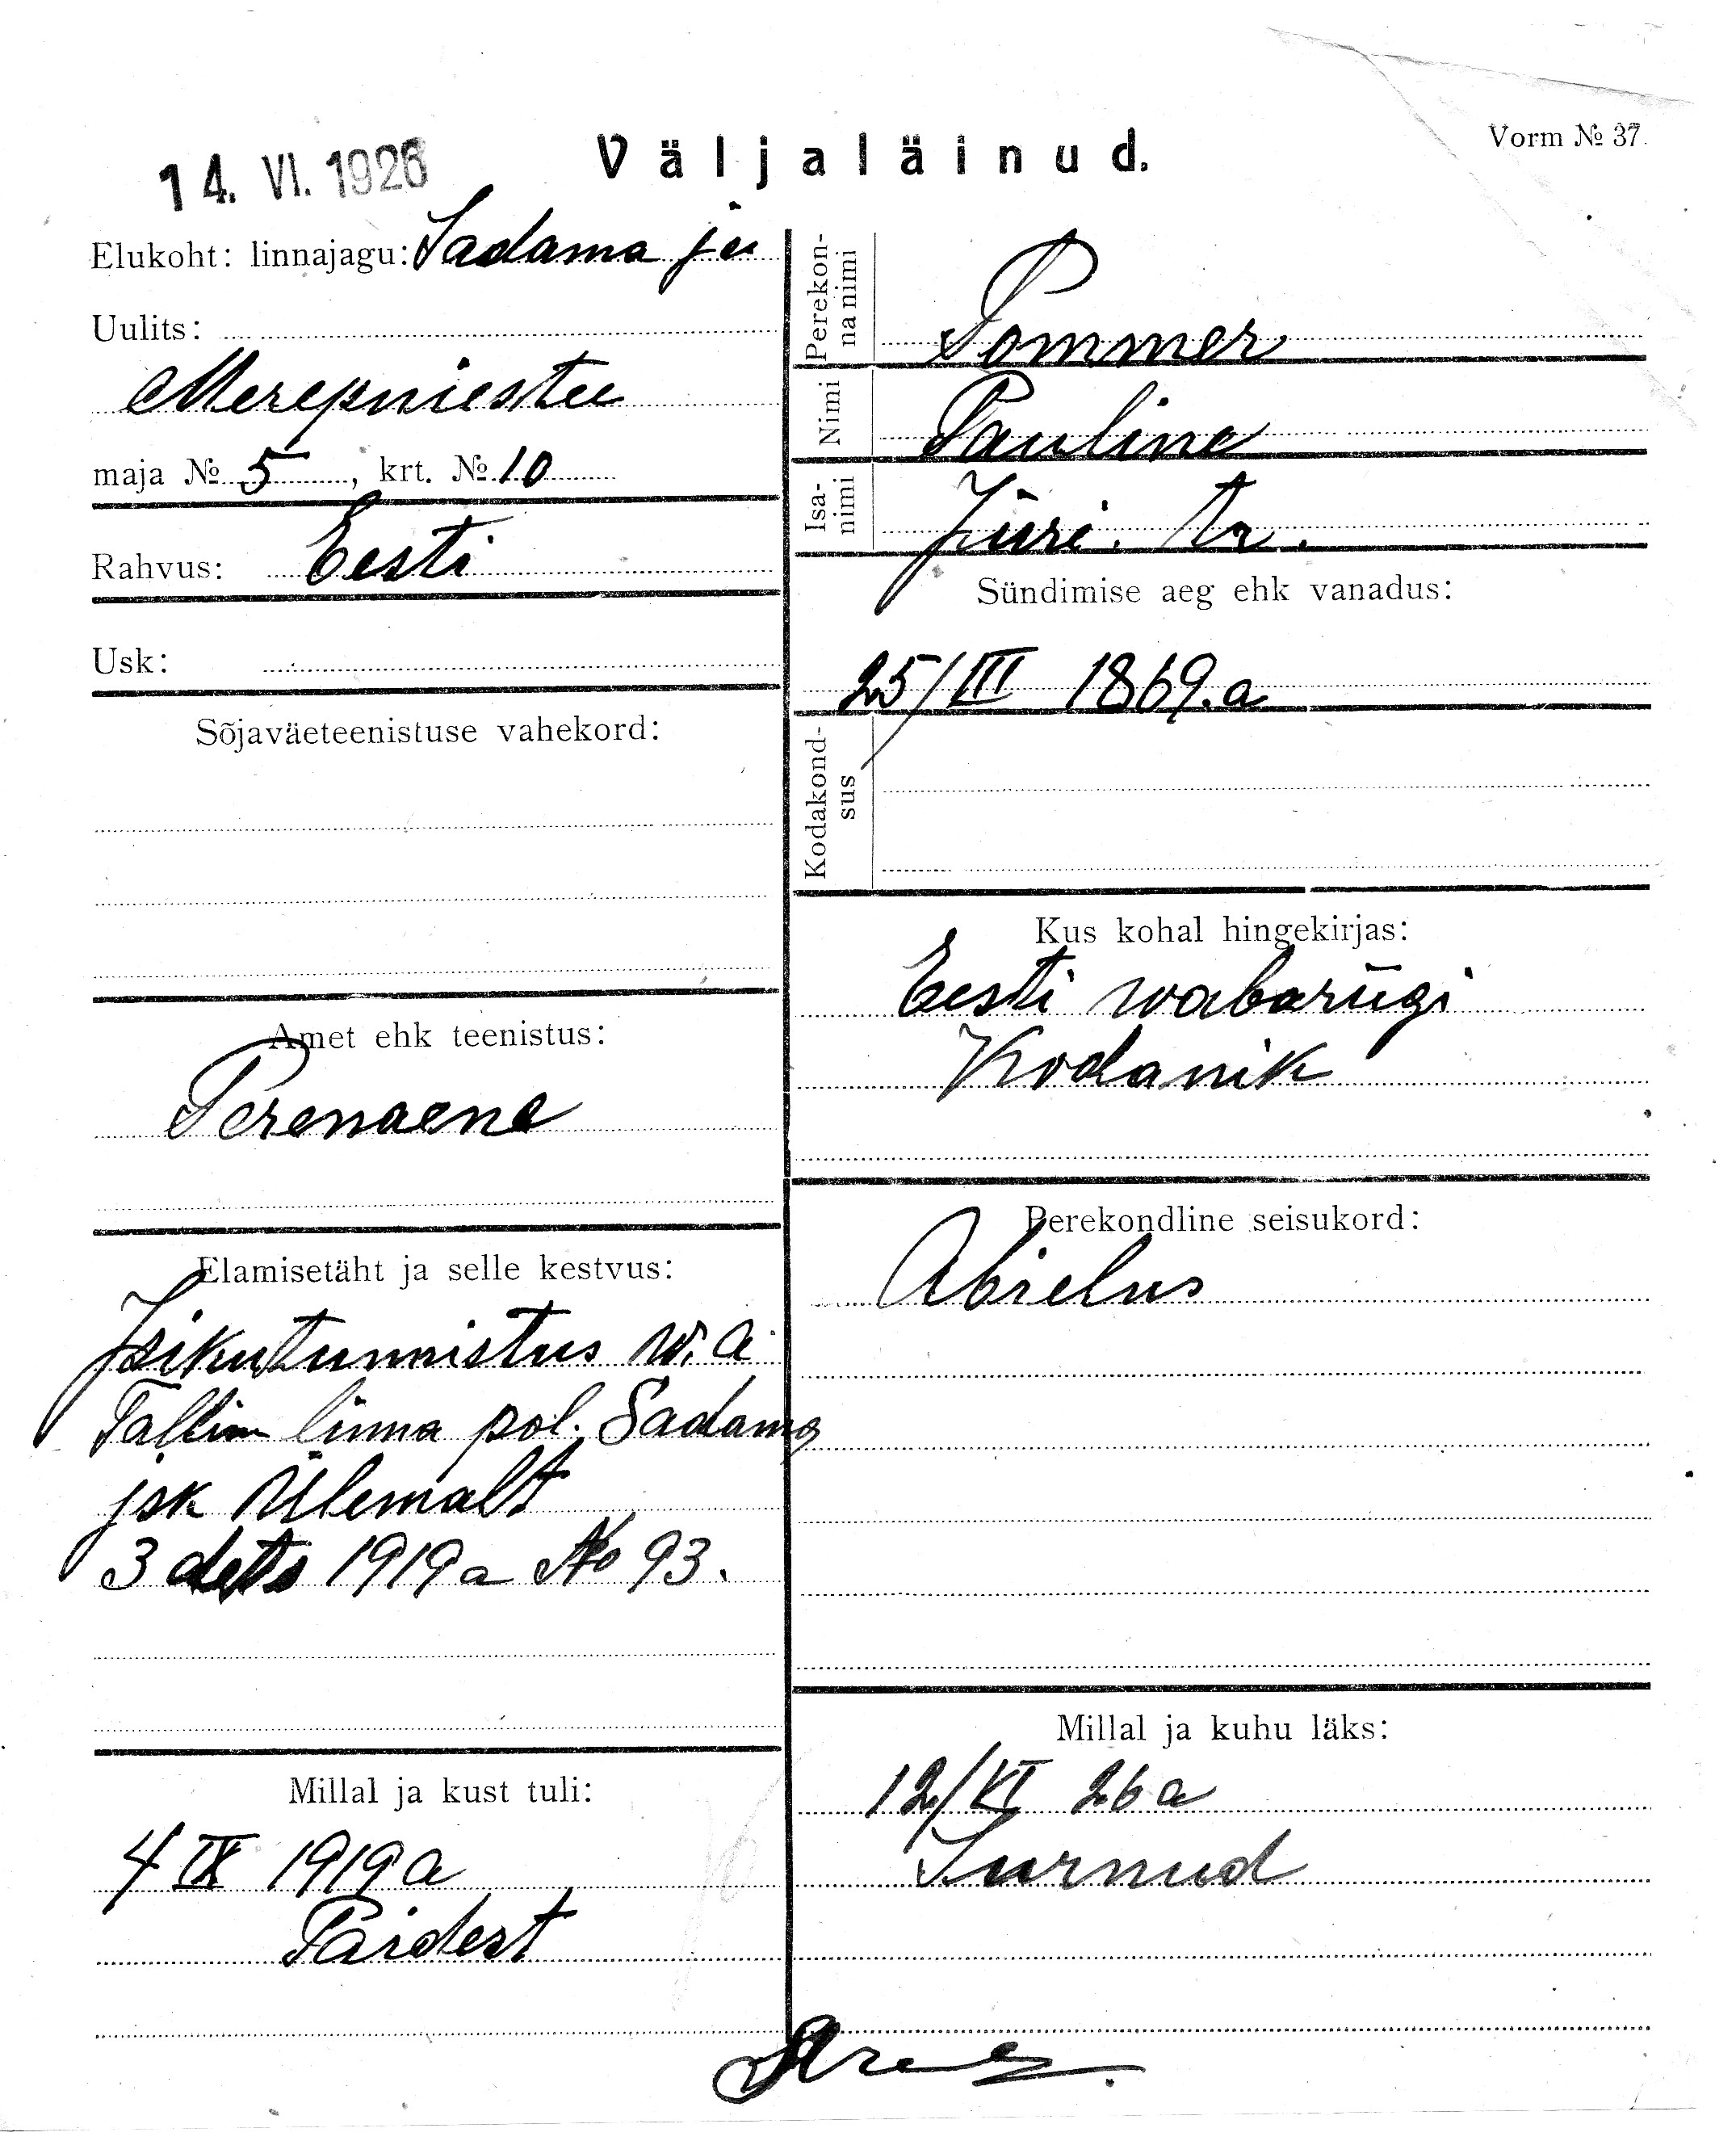 14. VI. 1926
Väljaläinud.
Vorm № 37.
Elukoht: linnajagu: Sadama js
Uulits:
Merepuiestee
maja № 5, krt. № 10
Rahvus: Eesti
Usk:
Sõjaväeteenistuse vahekord:
Amet ehk teenistus:
Perenaene
Elamisetäht ja selle kestvus:
Isikutunnistus w. a
Tallin linna pol. Sadama
jsk Ülemalt
3 dets 1919 a No 93.
Millal ja kust tuli:
4 IX 1919 a
Paidest
Perekon-
na nimi
Pommer
Nimi
Pauline
Isa-
nimi
Jüri. tr.
Sündimise aeg ehk vanadus:
25/III 1869. a
Kodakond-
sus
Kus kohal hingekirjas:
Eesti wabariigi
Kodanik
Perekondline seisukord:
Abielus
Millal ja kuhu läks:
12/VI 26 a
Surnud